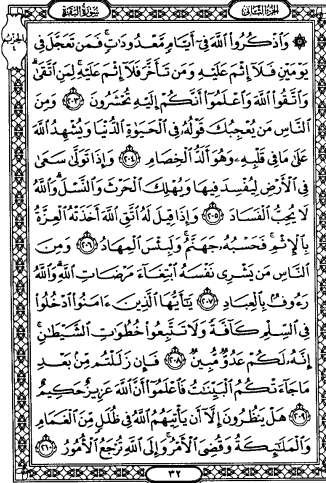 الجزء الثاني سورة البقرة
الحزب ٤
۞ وَاذْكُرُوا اللَّهَ فِي أَيَّامٍ مَعْدُودَاتٍ فَمَنْ تَعَجَّلَ فِي
يَوْمَيْنِ فَلَا إِثْمَ عَلَيْهِ وَمَنْ تَأَخَّرَ فَلَا إِثْمَ عَلَيْهِ لِمَنِ اتَّقَىٰ
وَاتَّقُوا اللَّهَ وَاعْلَمُوا أَنَّكُمْ إِلَيْهِ تُحْشَرُونَ ﴿٢٠٣﴾ وَمِنَ
النَّاسِ مَنْ يُعْجِبُكَ قَوْلُهُ فِي الْحَيَوٰةِ الدُّنْيَا وَيُشْهِدُ اللَّهَ
عَلَىٰ مَا فِي قَلْبِهِ وَهُوَ أَلَدُّ الْخِصَامِ ﴿٢٠٤﴾ وَإِذَا تَوَلَّىٰ سَعَىٰ
فِي الْأَرْضِ لِيُفْسِدَ فِيهَا وَيُهْلِكَ الْحَرْثَ وَالنَّسْلَ وَاللَّهُ
لَا يُحِبُّ الْفَسَادَ ﴿٢٠٥﴾ وَإِذَا قِيلَ لَهُ اتَّقِ اللَّهَ أَخَذَتْهُ الْعِزَّةُ
بِالْإِثْمِ فَحَسْبُهُ جَهَنَّمُ وَلَبِئْسَ الْمِهَادُ ﴿٢٠٦﴾ وَمِنَ
النَّاسِ مَنْ يَشْرِي نَفْسَهُ ابْتِغَاءَ مَرْضَاتِ اللَّهِ وَاللَّهُ
رَءُوفٌ بِالْعِبَادِ ﴿٢٠٧﴾ يَٰأَيُّهَا الَّذِينَ ءَامَنُوا ادْخُلُوا
فِي السِّلْمِ كَافَّةً وَلَا تَتَّبِعُوا خُطُوَٰتِ الشَّيْطَٰنِ
إِنَّهُ لَكُمْ عَدُوٌّ مُبِينٌ ﴿٢٠٨﴾ فَإِنْ زَلَلْتُمْ مِنْ بَعْدِ
مَا جَاءَتْكُمُ الْبَيِّنَٰتُ فَاعْلَمُوا أَنَّ اللَّهَ عَزِيزٌ حَكِيمٌ
﴿٢٠٩﴾ هَلْ يَنْظُرُونَ إِلَّا أَنْ يَأْتِيَهُمُ اللَّهُ فِي ظُلَلٍ مِنَ الْغَمَامِ
وَالْمَلَٰئِكَةُ وَقُضِيَ الْأَمْرُ وَإِلَى اللَّهِ تُرْجَعُ الْأُمُورُ ﴿٢١٠﴾
٣٢